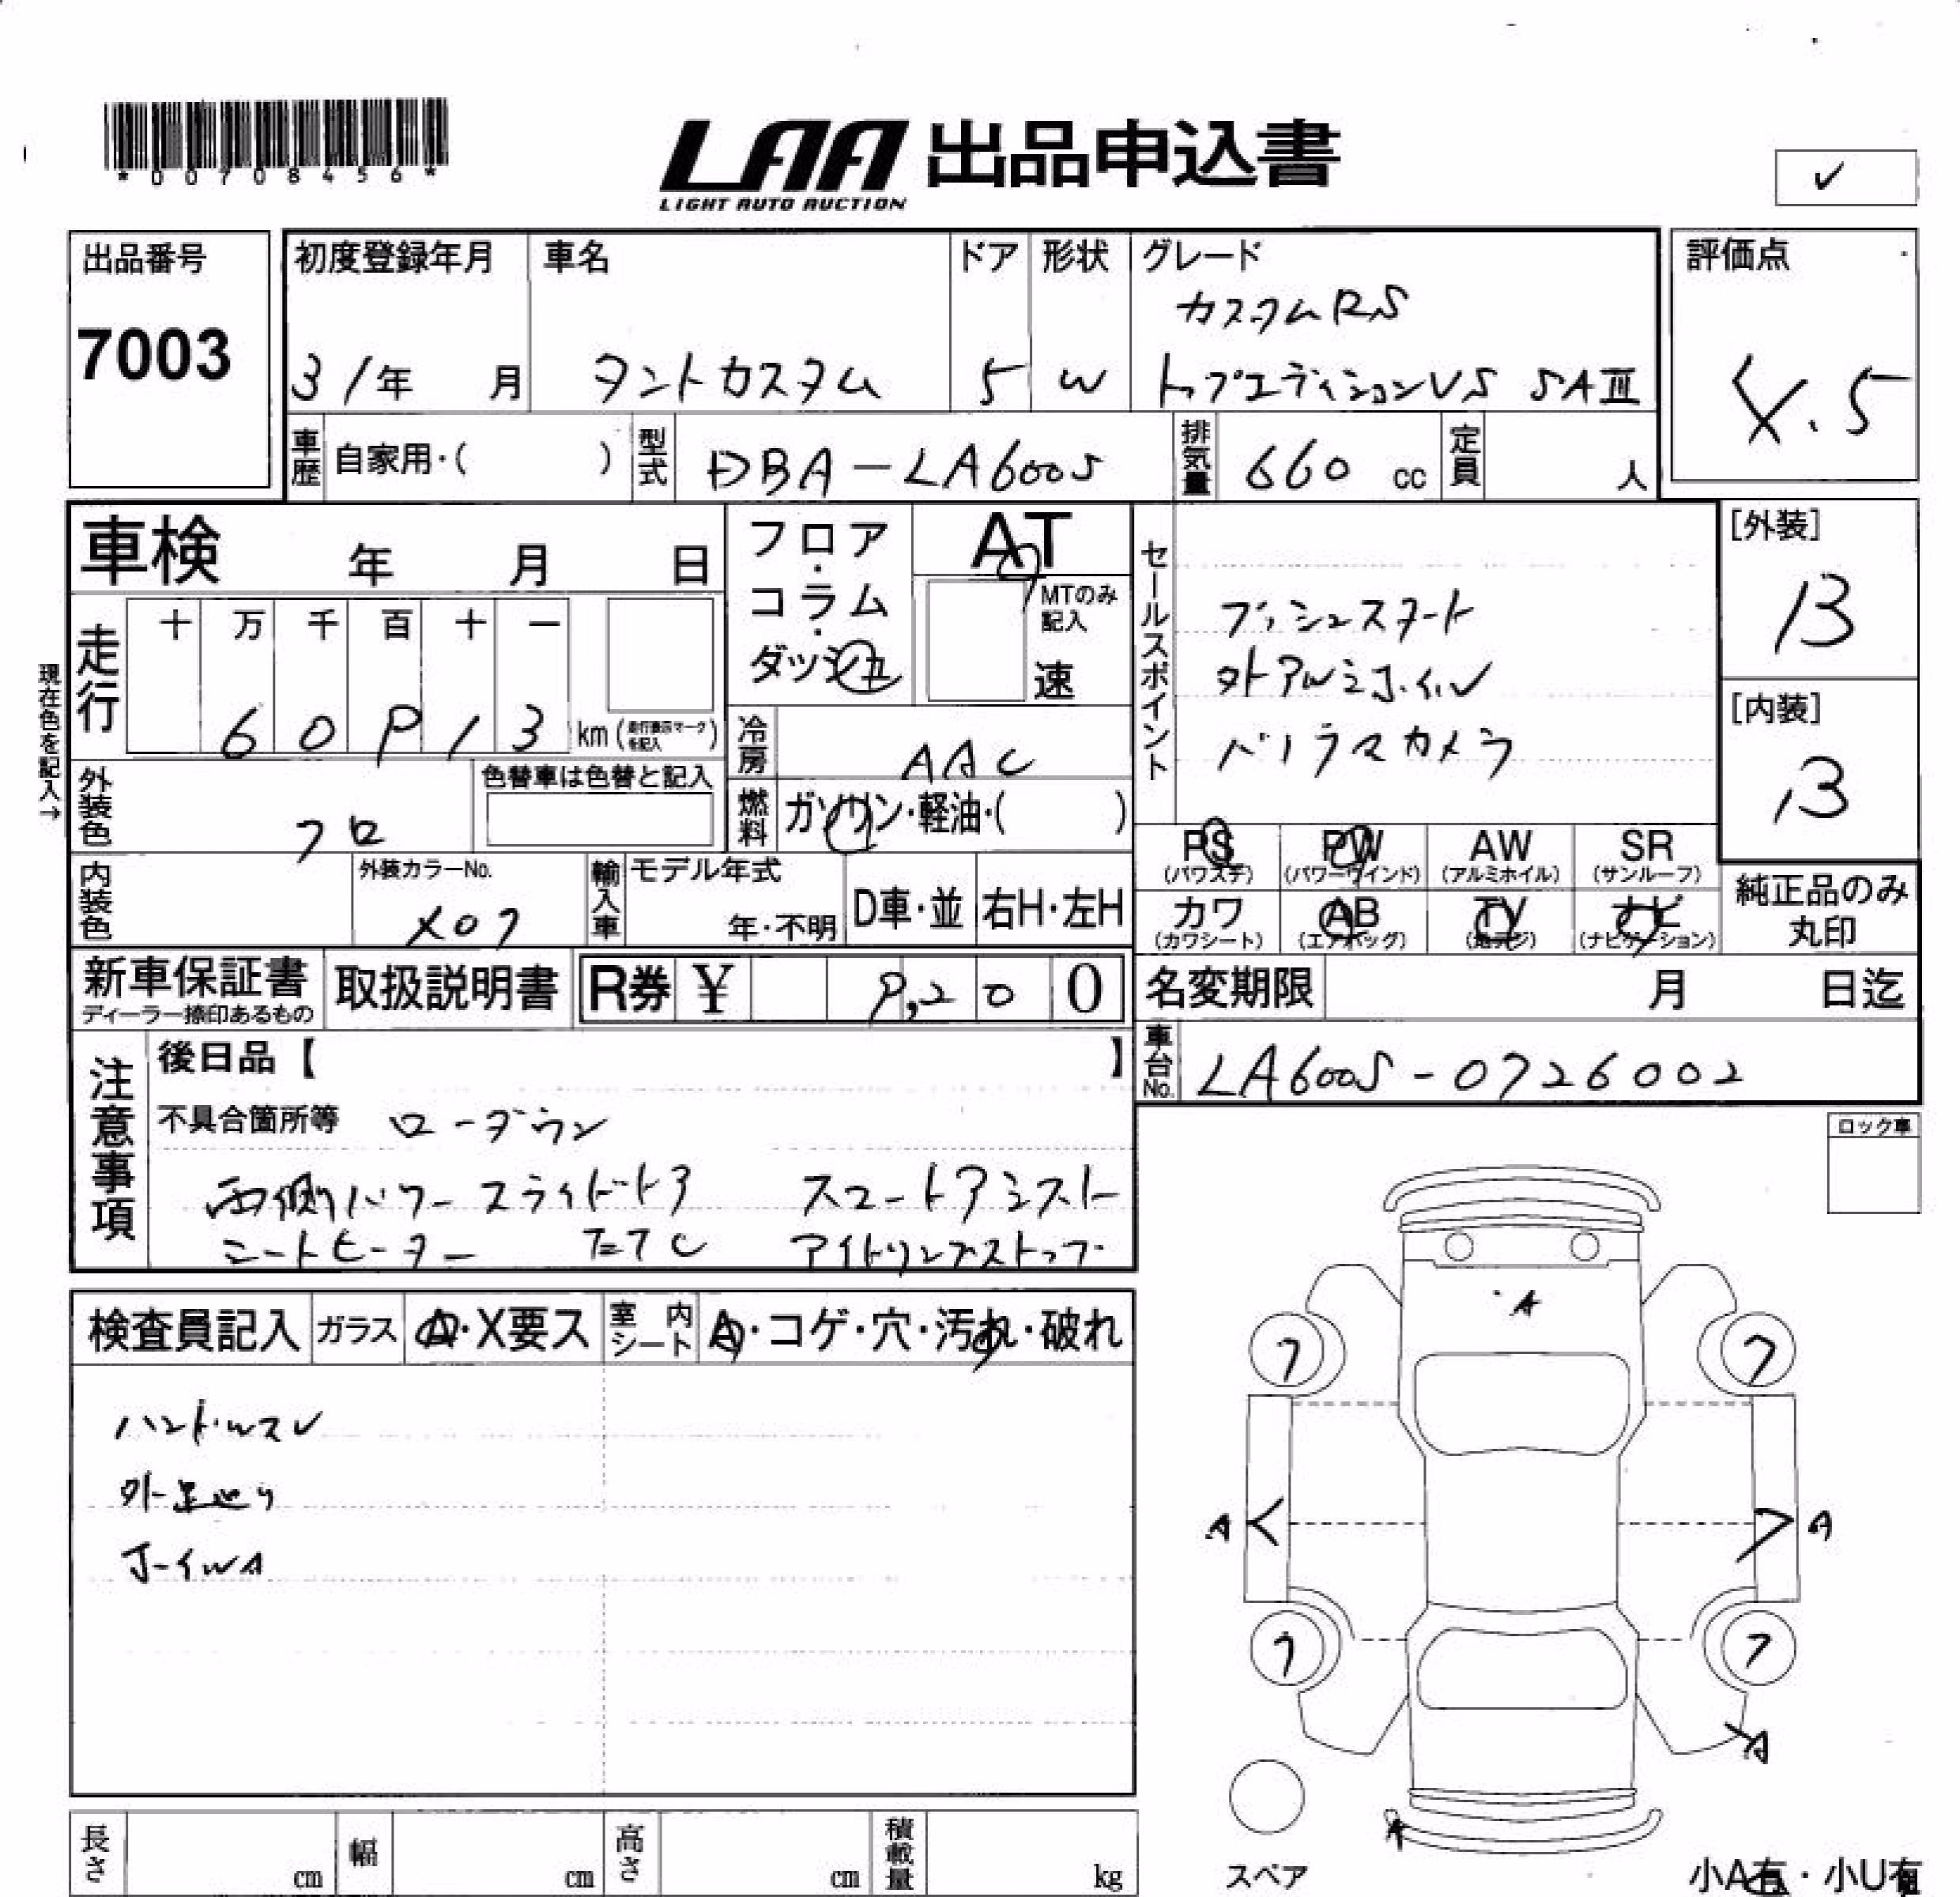 *00708456*
LAA 出品申込書
LIGHT AUTO AUCTION
✓
出品番号
7003
初度登録年月
31年 月
車名
タントカスタム
ドア
5
形状
W
グレード
カスタムRS
トップエディションVS SAⅢ
評価点
4.5
車歴 自家用・( )
型式 DBA-LA600S
排気量 660 cc
定員 人
車検 年 月 日
フロア・コラム・ダッシュ
AT
MTのみ記入
速
走行
十 万 千 百 十 一
6 0 9 1 3 km (走行表示マークを記入)
現在色を記入→
外装色 クロ
色替車は色替と記入
冷房 AAC
燃料 ガソリン・軽油・( )
セールスポイント
プッシュスタート
外アルミホイル
パノラマカメラ
[外装]
13
[内装]
13
内装色
外装カラーNo.
X07
輸入車
モデル年式
年・不明
D車・並
右H・左H
PS (パワステ)
PW (パワーウインド)
AW (アルミホイル)
SR (サンルーフ)
カワ (カワシート)
AB (エアバッグ)
TV (地デジ)
ナビ (ナビゲーション)
純正品のみ
丸印
新車保証書
ディーラー捺印あるもの
取扱説明書
R券 ¥ 9,200
名変期限 月 日迄
車台No. LA600S-0726002
注意事項
後日品【 】
不具合箇所等 ローダウン
両側パワースライドドア スマートアシスト
シートヒーター ETC アイドリングストップ
ロック車
検査員記入
ガラス A・X要ス
室内シート A・コゲ・穴・汚れ・破れ
ハンドルスレ
外足廻り
ホイルA
A
7 7
A A
7 7
A
A
スペア
長さ cm
幅 cm
高さ cm
積載量 kg
小A有・小U有